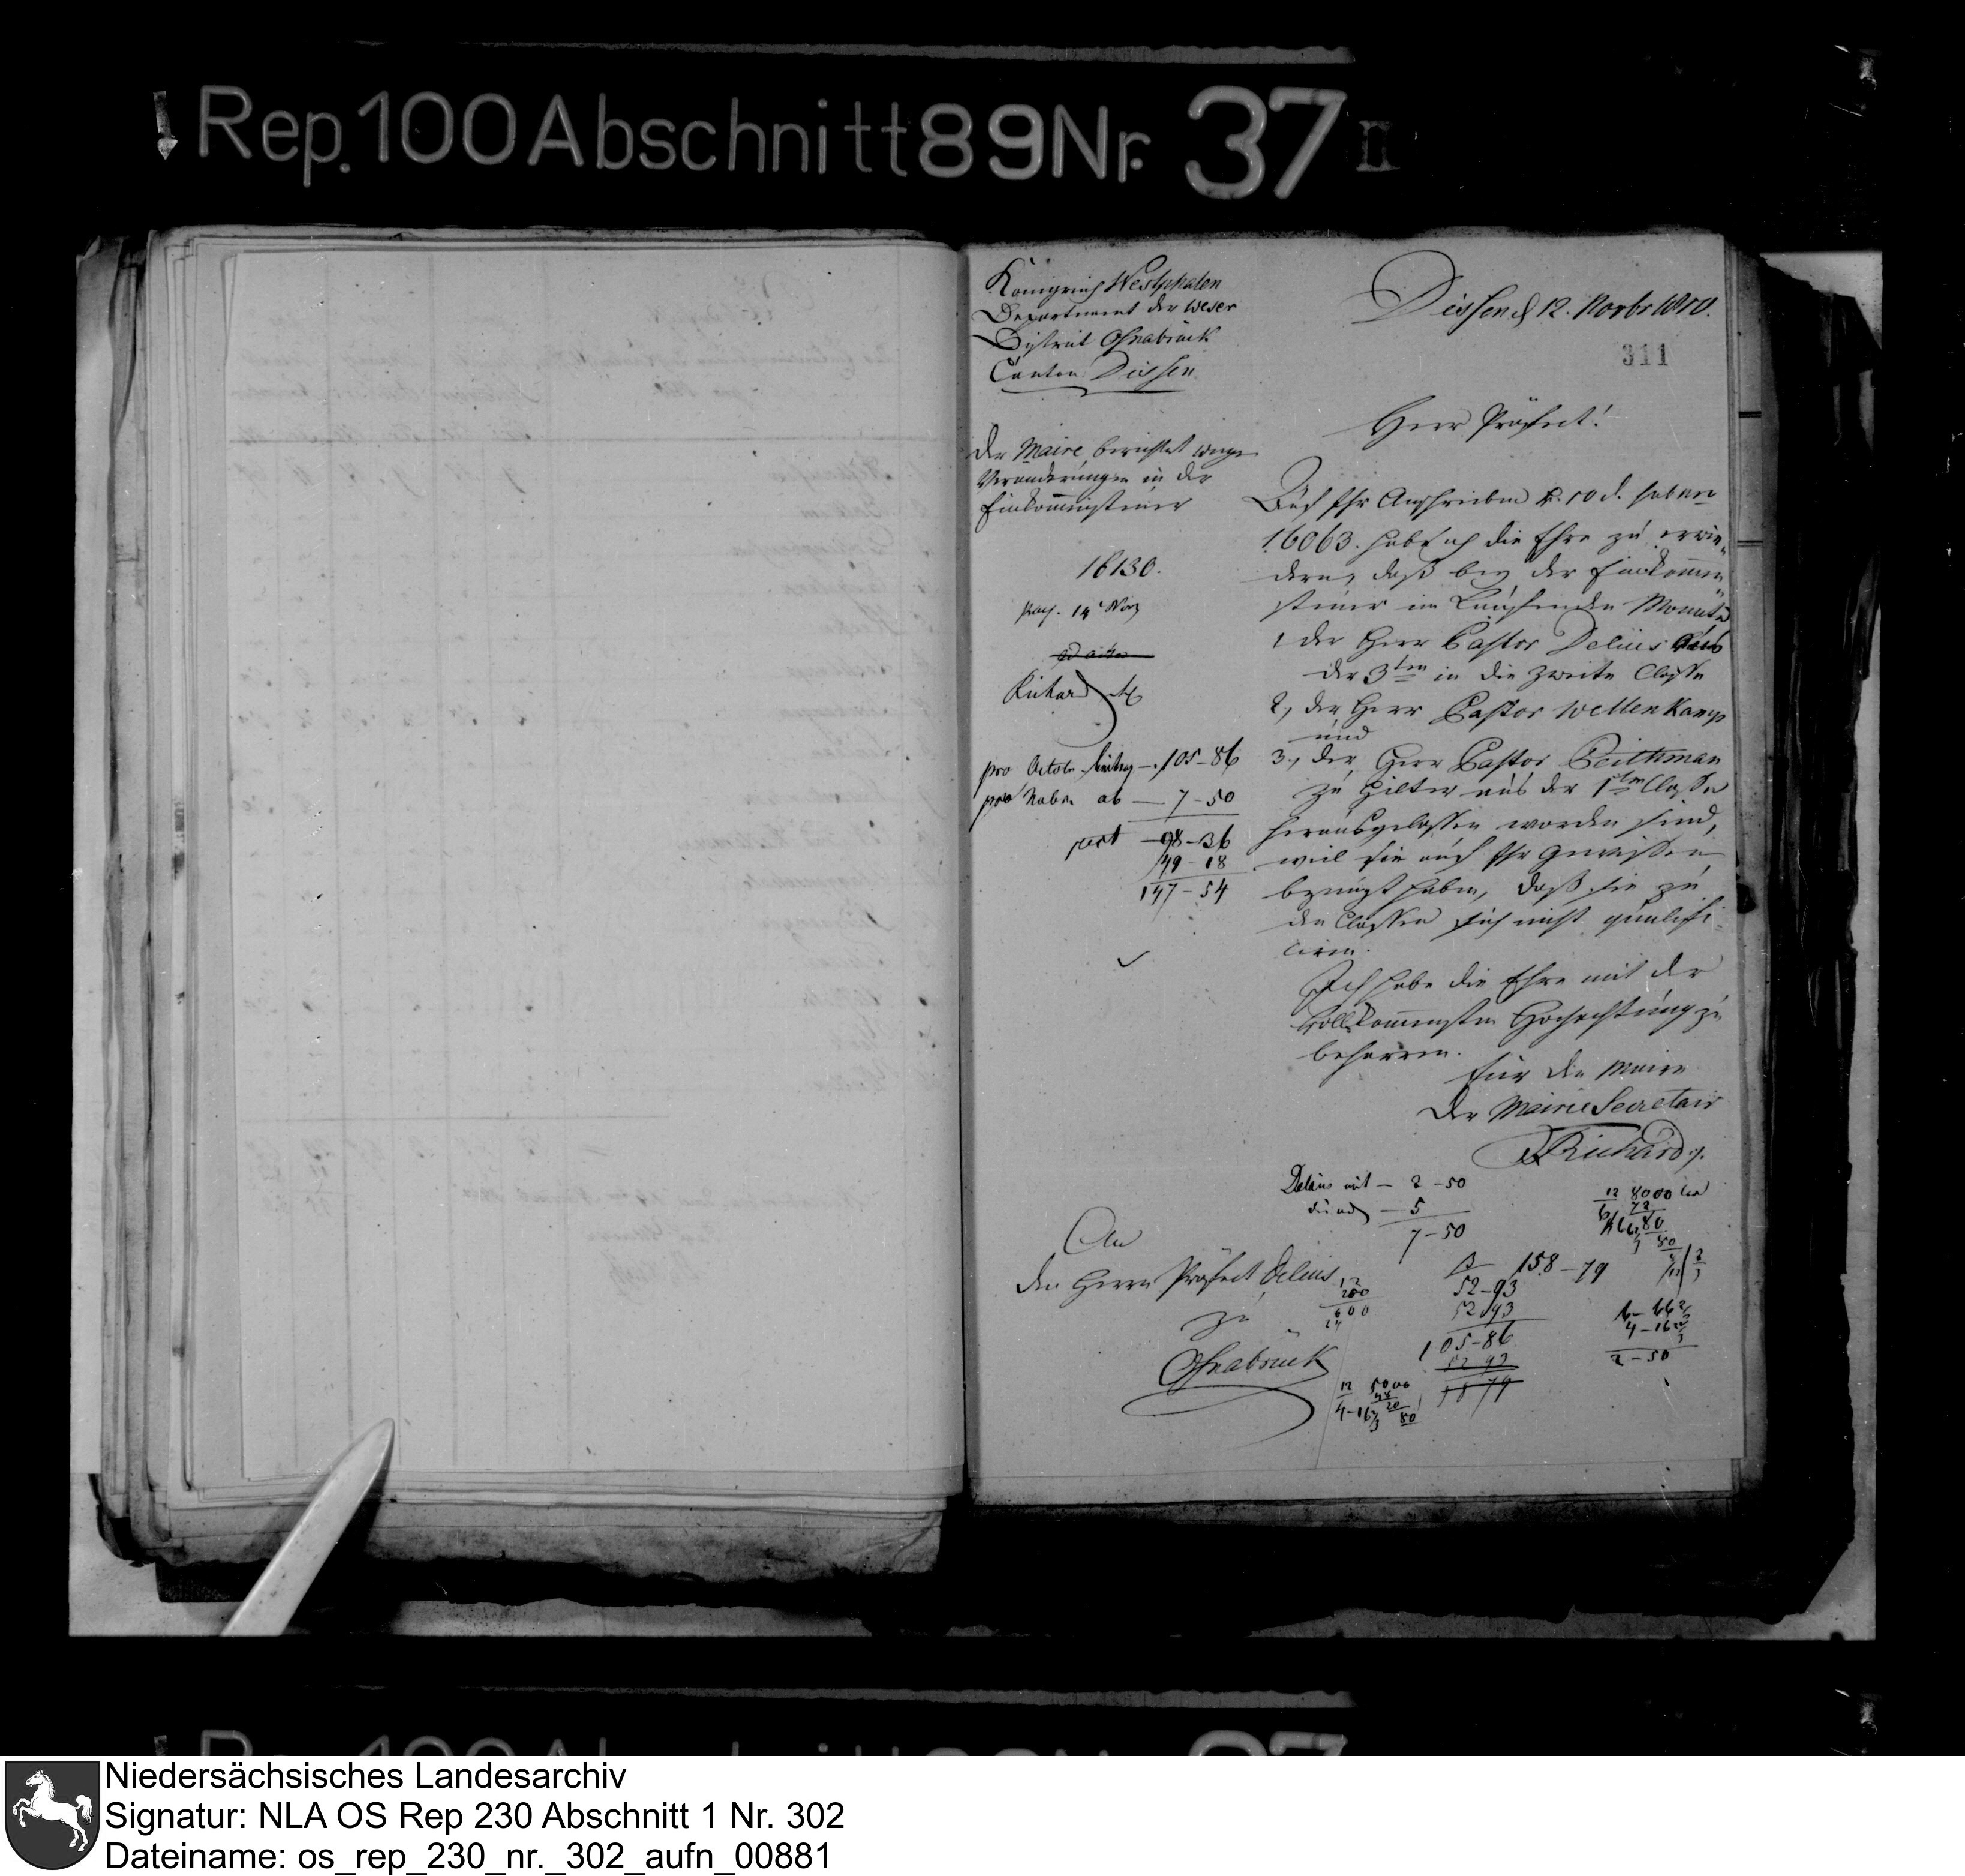 Rep. 100 Abschnitt 89 Nr. 37 II
Königreich Westphalen
Departement der Weser
District Osnabrück
Canton Dissen
Dissen d 12. Novbr 1810.
311
Der Maire berichtet wegen
Veränderungen in der
Einkommensteuer
16130.
14 Nov
Richard
pro Octobr betrug — 105-86
pro Nobr. ab — 7-50
rest — 98-36
49-18
147-54
Herr Präfect!
Auf Ihr Anschreiben v. 10 d. habe
16063. habe ich die Ehre zu erwie-
dern, daß bey der Einkommen
steuer im Laufenden Monate
1 der Herr Pastor Delius aus
der 3ten in die zweite Classe
2, der Herr Pastor Wellenkamp
und
3, der Herr Pastor Beithman
zu Hilter aus der 1sten Classe
herausgelassen worden sind,
weil sie auf Ihr Gewissen
bezeugt haben, daß sie zu
den Classen sich nicht qualifi-
ciren.
Ich habe die Ehre mit der
vollkommensten Hochachtung zu
beharren.
Für den Maire
Der Mairie Secretair
Richard
Delius mit — 2-50
— 5
7-50
An
den Herrn Präfect Delius
zu
Osnabrück
12
200
600
24
158-79
52-93
52 93
105-86
52 93
12 8000
72
80
12 5000
48
20
4-16 2/3
6-66 2/3
4-16 2/3
2-50
Niedersächsisches Landesarchiv
Signatur: NLA OS Rep 230 Abschnitt 1 Nr. 302
Dateiname: os_rep_230_nr._302_aufn_00881